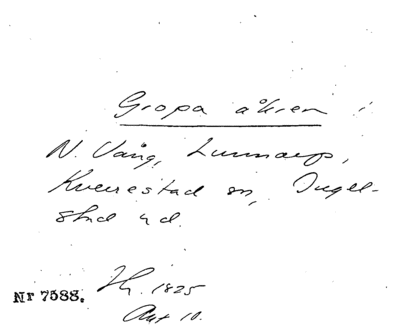 Gropa åkren i
N. Vång, Lunnarp,
Kverrestad sn, Ingel-
stad hd.
Nr 7588.
1825
Akt 10.